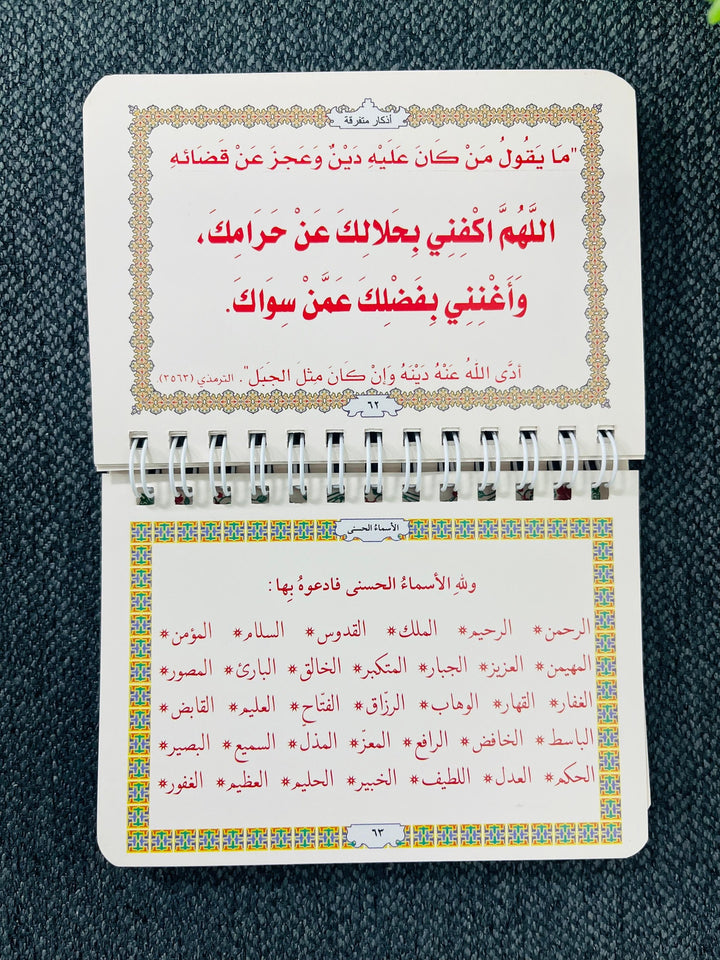 أذكار متفرقة
"مَا يَقُولُ مَنْ كَانَ عَلَيْهِ دَيْنٌ وَعَجزَ عَنْ قَضَائَهِ
اللَّهُمَّ اكْفِنِي بِحَلالِكَ عَنْ حَرَامِكَ،
وَأَغْنِنِي بِفَضْلِكَ عَمَّنْ سِوَاكَ.
أدَّى اللهُ عَنْهُ دَيْنَهُ وَإنْ كَانَ مِثلَ الجَبَل". الترمذي (٣٥٦٣).
٦٢
الأسماءُ الحسنى
وللهِ الأسماءُ الحسنى فادعوهُ بِها:
الرحمن* الرحيم* الملك* القدوس* السلام* المؤمن*
المهيمن* العزيز* الجبار* المتكبر* الخالق* البارئ* المصور*
الغفار* القهار* الوهاب* الرزّاق* الفتّاح* العليم* القابض*
الباسط* الخافض* الرافع* المعزّ* المذلّ* السميع* البصير*
الحكم* العدل* اللطيف* الخبير* الحليم* العظيم* الغفور*
٦٣